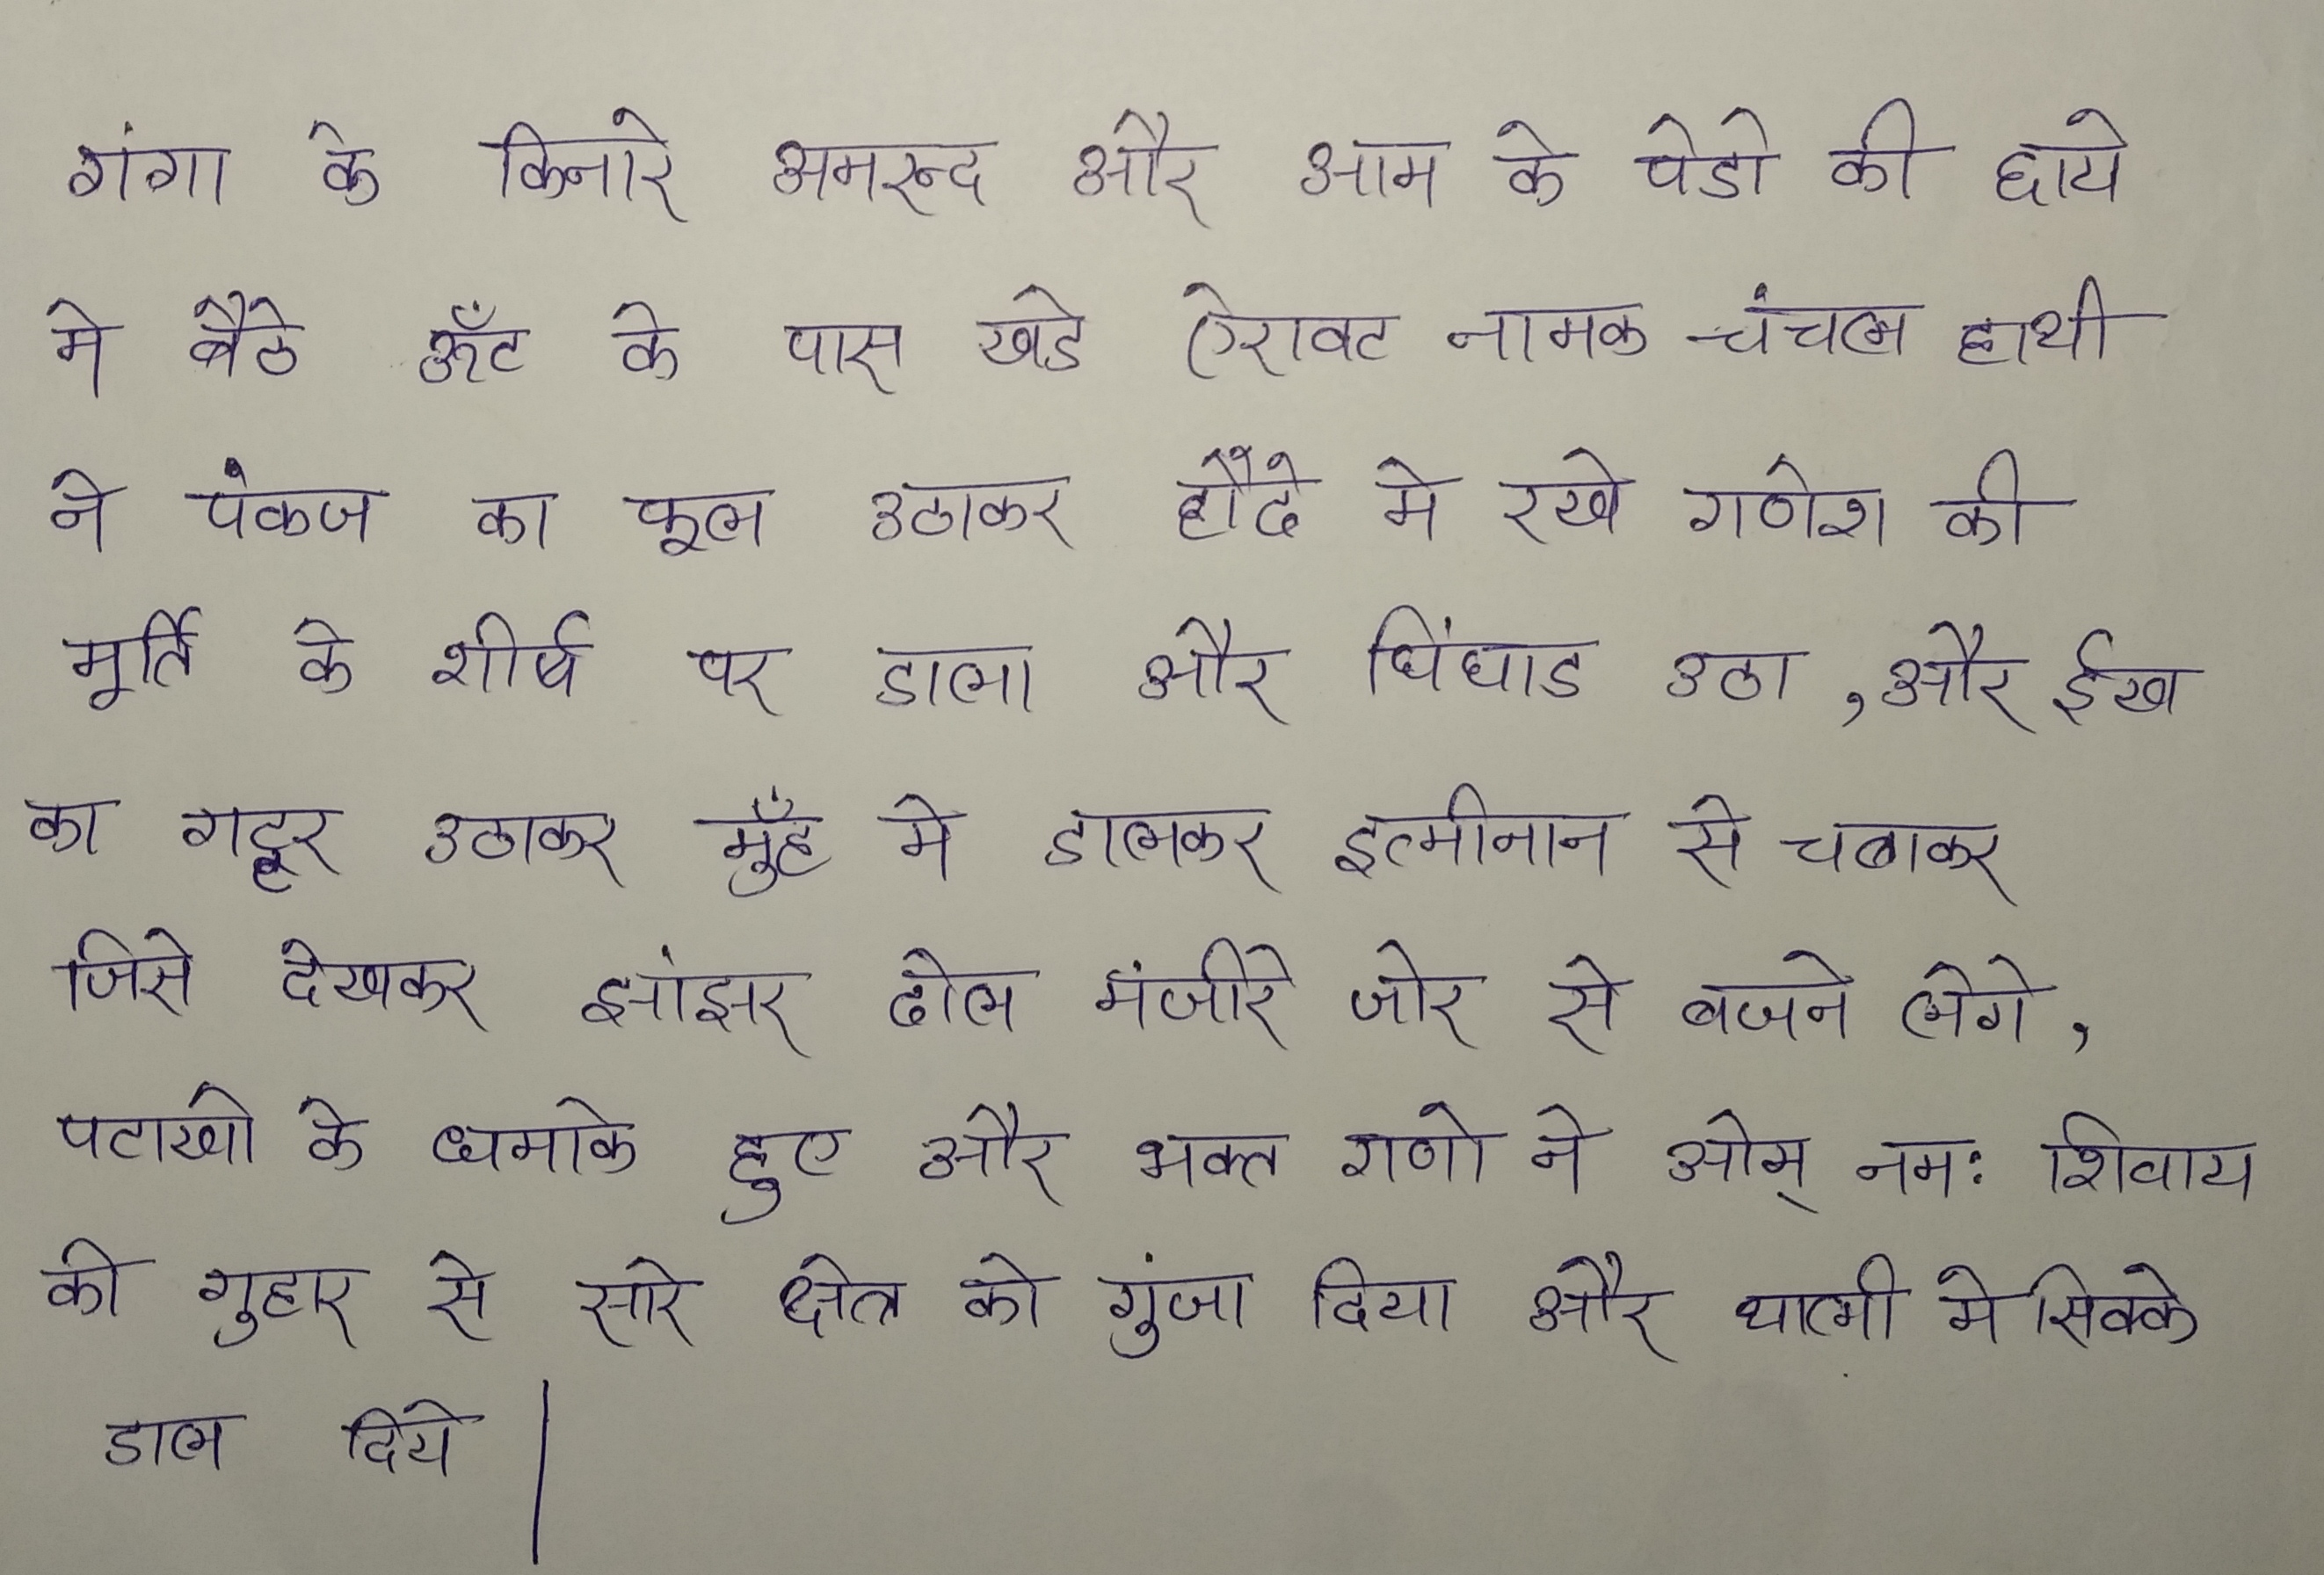 गंगा के किनारे अमरन्द और आम के पेडो की छाये
मे बैठे ऊँट के पास खडे ऐरावट नामक चंचल हाथी
ने पंकज का फूल उठाकर हौदे मे रखे गणेश की
मूर्ति के शीर्ष पर डाला और घिंघाड उठा , और ईख
का गट्ठर उठाकर मुँह मे डालकर इत्मीनान से चबाकर
जिसे देखकर झांझर ढोल मंजीरे जोर से बजने लेगे ,
पटाखो के धमाके हुए और भक्त गणो ने ओम् नमः शिवाय
की गुहार से सारे क्षेत्र को गुंजा दिया और थाली मे सिक्के
डाल दिये |